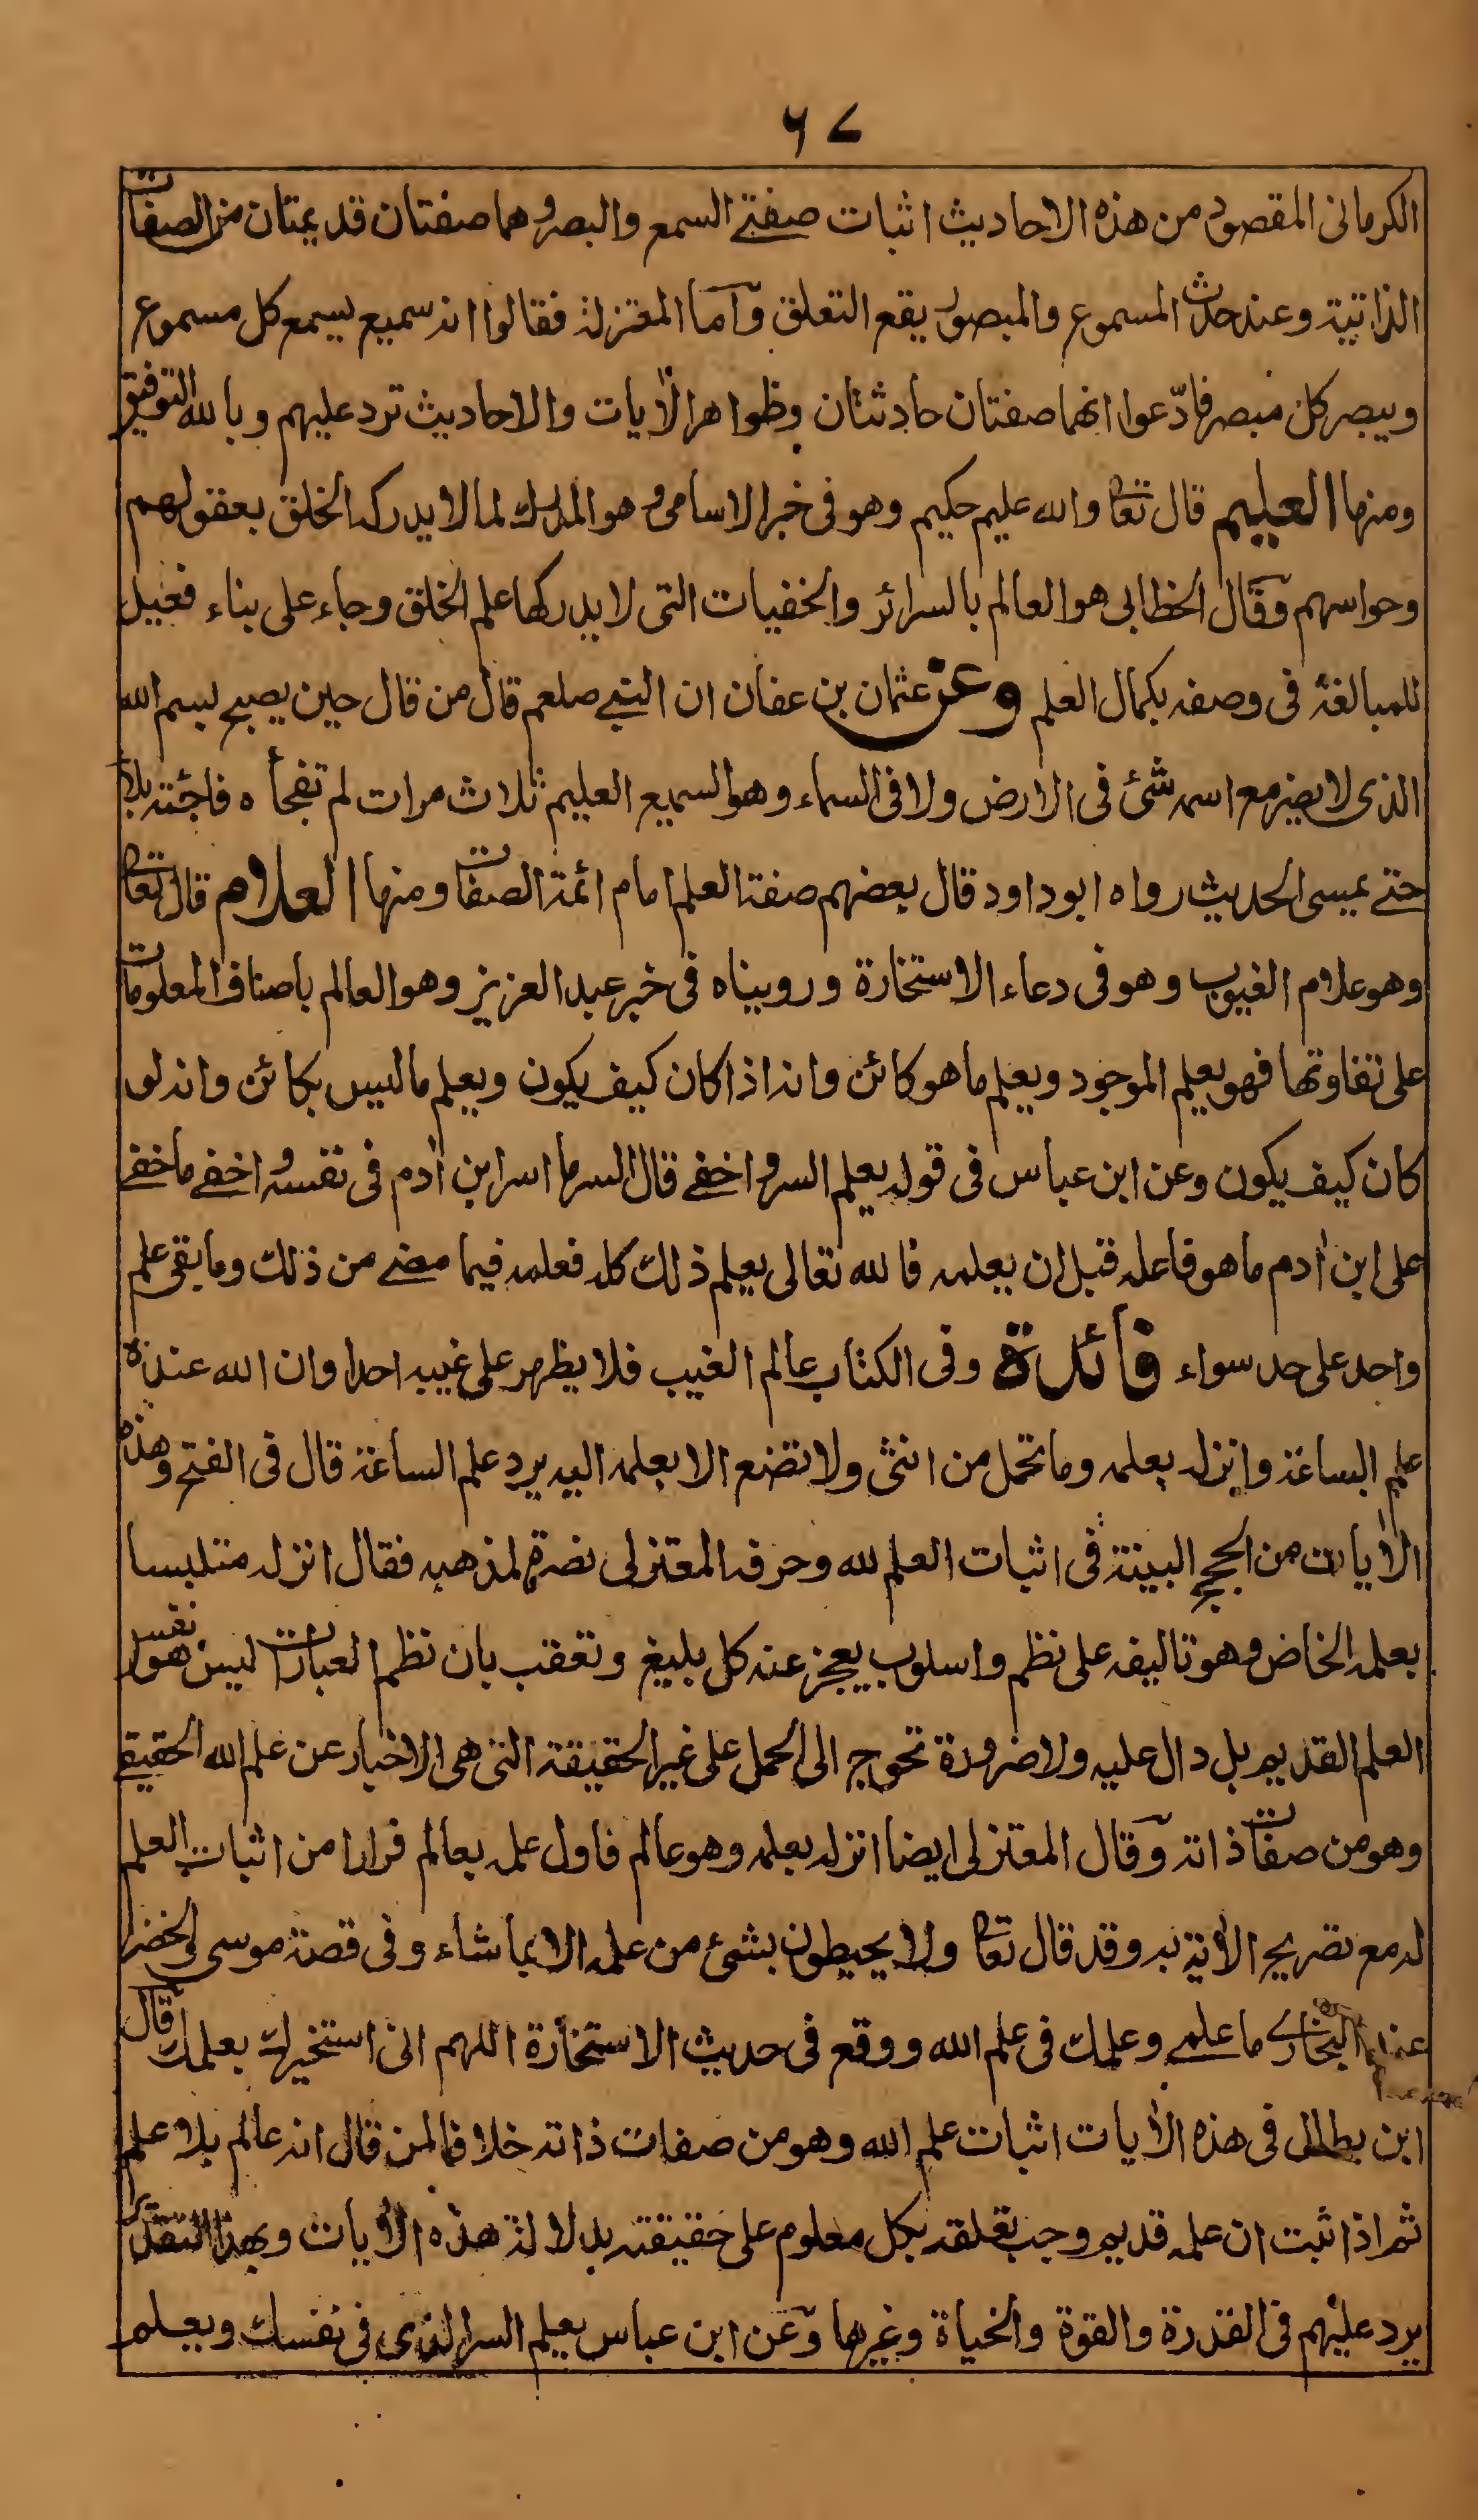 ٦٧
الكرمانى المقصود من هذه الاحاديث اثبات صفتى السمع والبصر وهما صفتان قديمتان من الصفات
الذاتية وعند حدث المسموع والمبصور يقع التعلق وآما المعتزلة فقالوا انه سميع يسمع كل مسموع
ويبصر كل مبصر فادّعوا انهما صفتان حادثتان وظواهر الآيات والاحاديث ترد عليهم وبالله التوفيق
ومنها العليم قال تعا والله عليم حكيم وهو فى خبر الاسامى وهو المدرك لما لا يدركه الخلق بعقولهم
وحواسهم وقال الخطابى هو العالم بالسرائر والخفيات التى لا يدركها علم الخلق وجاء على بناء فعيل
للمبالغة فى وصفه بكمال العلم وعن عثمان بن عفان ان النبى صلعم قال من قال حين يصبح بسم الله
الذى لا يضر مع اسمه شئ فى الارض ولا فى السماء وهو السميع العليم ثلاث مرات لم تفجأه فاجئة بلاء
حتى يمسى الحديث رواه ابوداود قال بعضهم صفة العلم امام ائمة الصفات ومنها العلام قال تعا
وهو علام الغيوب وهو فى دعاء الاستخارة وروبيناه فى خبر عبد العزيز وهو العالم باصناف المعلومات
على تفاوتها فهو يعلم الموجود ويعلم ما هو كائن وانه اذا كان كيف يكون ويعلم ما ليس بكائن وانه لو
كان كيف يكون وعن ابن عباس فى قوله يعلم السر واخفى قال السر ما اسر ابن آدم فى نفسه واخفى ما خفى
على ابن آدم ما هو فاعله قبل ان يعلمه فالله تعالى يعلم ذلك كله فعلمه فيما مضى من ذلك وما بقى علم
واحد على حد سواء فائدة وفى الكتاب عالم الغيب فلا يظهر على غيبه احدا وان الله عنده
علم الساعة وانزله بعلمه وما تحمل من انثى ولا تضع الا بعلمه اليه يرد علم الساعة قال فى الفتح وهذه
الآيات من الحجج البينة فى اثبات العلم لله وحرفه المعتزلى نصرة لمذهبه فقال انزله متلبسا
بعلمه الخاص وهو تاليفه على نظم واسلوب يعجز عنه كل بليغ وتعقب بان نظم العبارات ليس هو نفس
العلم القديم بل دال عليه ولا ضرورة تحوج الى الحمل على غير الحقيقة التى هى الاخبار عن علم الله الحقيقى
وهو من صفات ذاته وقال المعتزلى ايضا انزله بعلمه وهو عالم فاول علمه بعالم فرارا من اثبات العلم
له مع تصريح الآية به وقد قال تعا ولا يحيطون بشئ من علمه الا بما شاء وفى قصة موسى والخضر
عند البخارى ما علمى وعلمك فى علم الله ووقع فى حديث الاستخارة اللهم انى استخيرك بعلمك وقال
ابن بطال فى هذه الآيات اثبات علم الله وهو من صفات ذاته خلافا لمن قال انه عالم بلا علم
ثم اذا ثبت ان علمه قديم وجب تعلقه بكل معلوم على حقيقته بدلالة هذه الآيات وبهذا التقدير
يرد عليهم فى القدرة والقوة والحياة وغيرها وعن ابن عباس يعلم السر الذى فى نفسك ويعلم